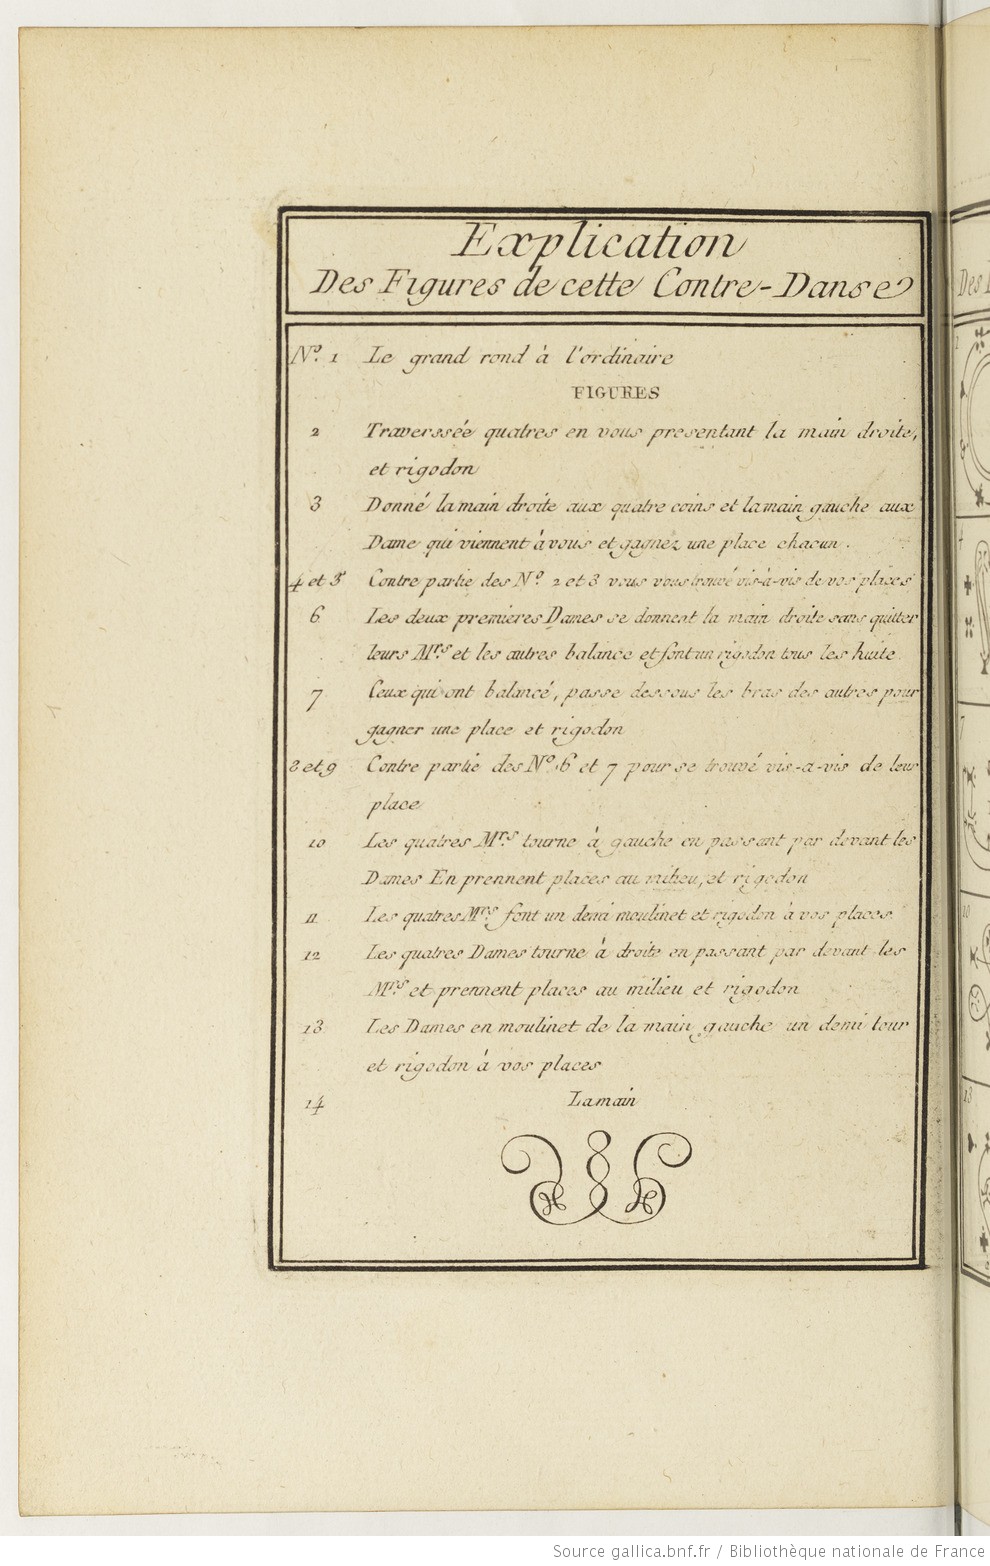 Explication
Des Figures de cette Contre-Danse
N.º 1 Le grand rond à l'ordinaire
FIGURES
2 Traverssée quatres en vous presentant la main droite,
et rigodon
3 Donné la main droite aux quatre coins et la main gauche aux
Dame qui viennent à vous et gagnez une place chacun.
4 et 5 Contre partie des N.º 2 et 3 vous vous trouvé vis-à-vis de vos places
6 Les deux premieres Dames se donnent la main droite sans quitter
leurs Mrs et les autres balance et font un rigodon tous les huite
7 Ceux qui ont balancé, passe dessous les bras des autres pour
gagner une place et rigodon
8 et 9 Contre partie des N.º 6 et 7 pour se trouvé vis-a-vis de leur
place
10 Les quatres Mrs tourne à gauche en passant par devant les
Dames En prennent places au milieu, et rigodon
11 Les quatres Mrs font un demi moulinet et rigodon à vos places
12 Les quatres Dames tourne à droite en passant par devant les
Mrs et prennent places au milieu et rigodon
13 Les Dames en moulinet de la main gauche un demi tour
et rigodon à vos places
14 La main
Source gallica.bnf.fr / Bibliothèque nationale de France